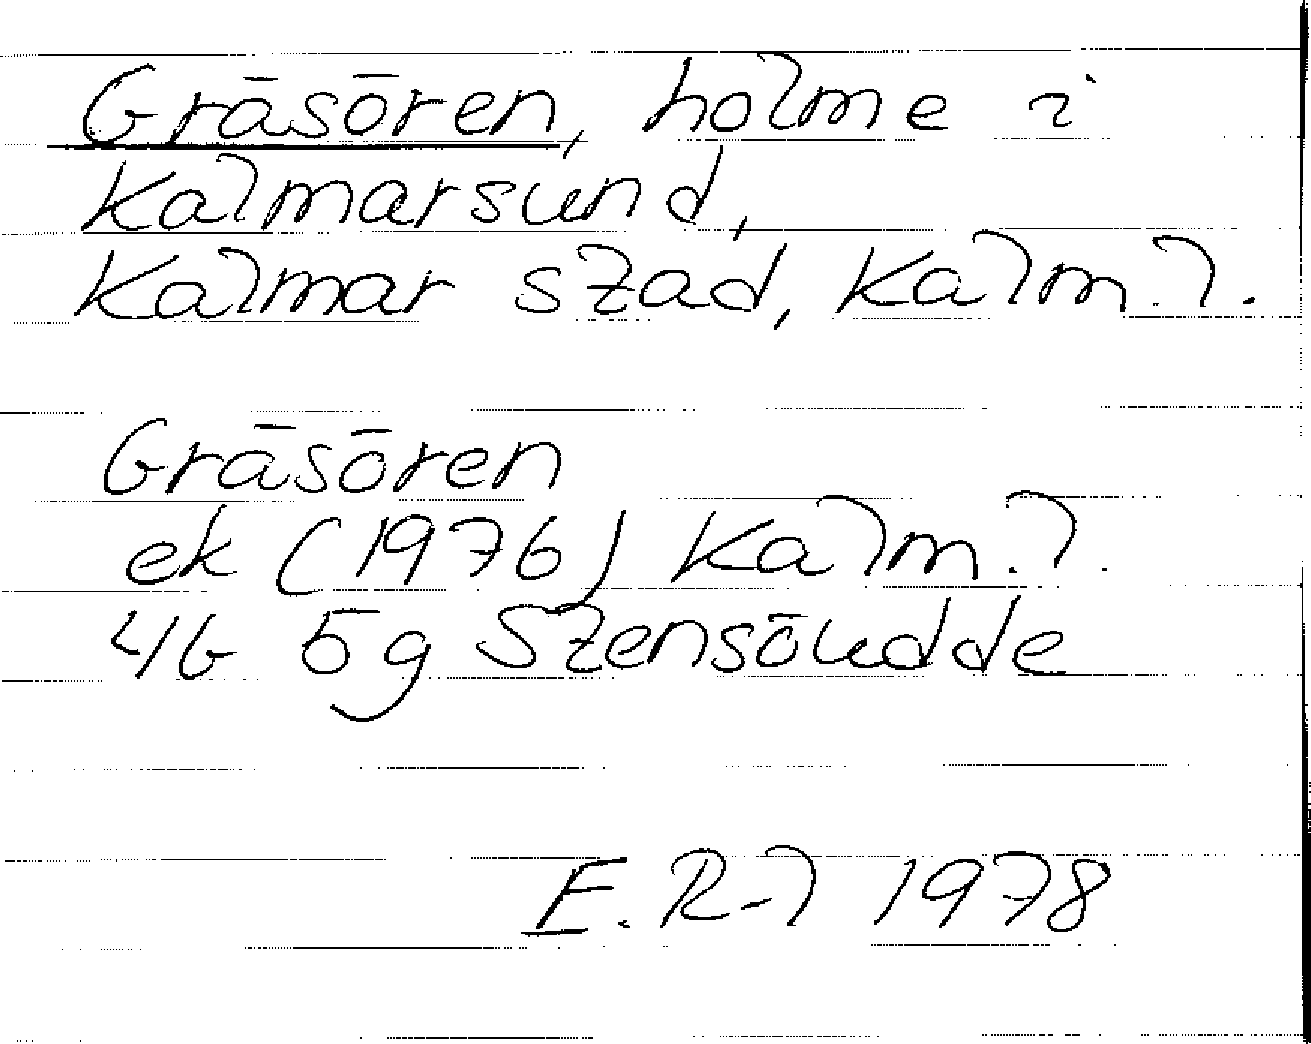 Gräsören, holme i
Kalmarsund,
Kalmar stad, Kalm. l.
Gräsören
ek (1976) Kalm. l.
4G 5g Stensöudde
E. R-l 1978